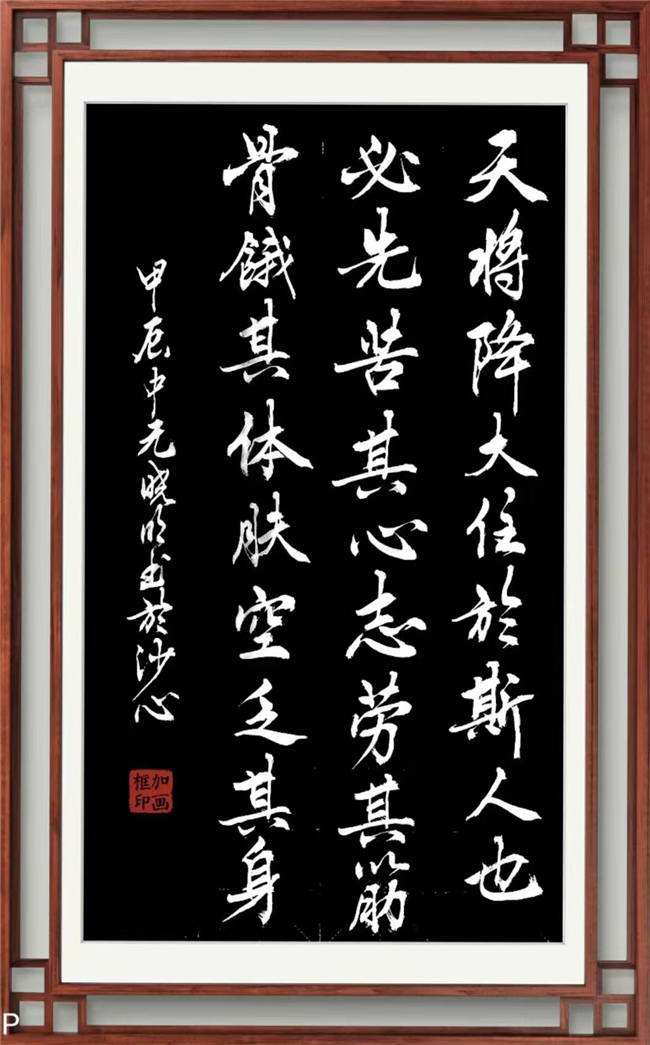 天将降大任於斯人也
必先苦其心志劳其筋
骨饿其体肤空乏其身
甲辰中元晓明书於沙心
加画框印
P